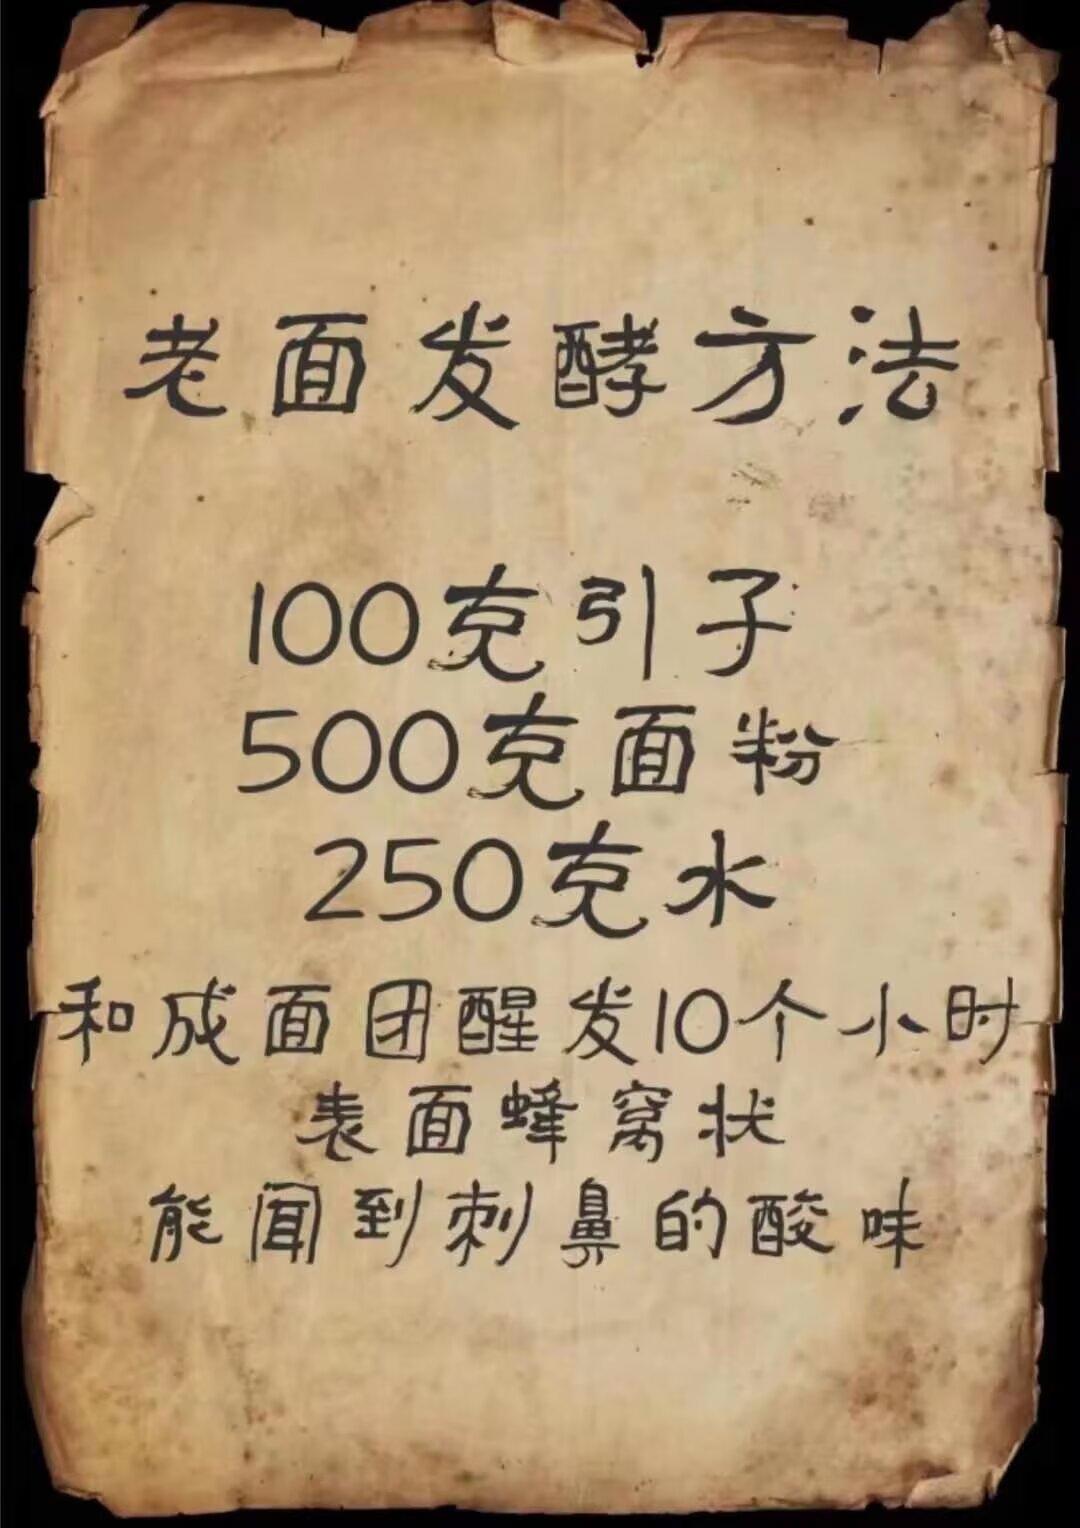 老面发酵方法
100克引子
500克面粉
250克水
和成面团醒发10个小时
表面蜂窝状
能闻到刺鼻的酸味